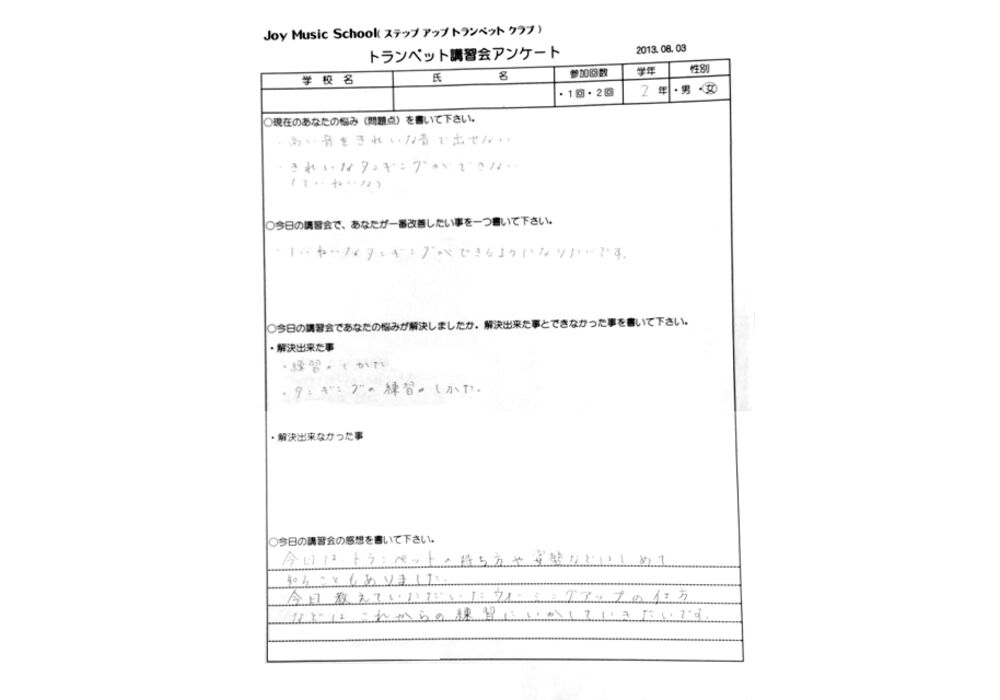 Joy Music School( ステップ アップ トランペット クラブ )
トランペット講習会アンケート
2013.08.03
学 校 名 氏 名 参加回数 学年 性別
・1回・2回 2 年 ・男 ・女
○現在のあなたの悩み（問題点）を書いて下さい。
・高い音をきれいな音で出せない
・きれいなタンギングができない
(ていねいな)
○今日の講習会で、あなたが一番改善したい事を一つ書いて下さい。
・ていねいなタンギングができるようになりたいです。
○今日の講習会であなたの悩みが解決しましたか。解決出来た事とできなかった事を書いて下さい。
・解決出来た事
・練習のしかた
・タンギングの練習のしかた。
・解決出来なかった事
○今日の講習会の感想を書いて下さい。
今日はトランペットの持ち方や姿勢などはじめて
知ることもありました。
今日教えていただいたウォーミングアップの仕方
などはこれからの練習にいかしていきたいです。